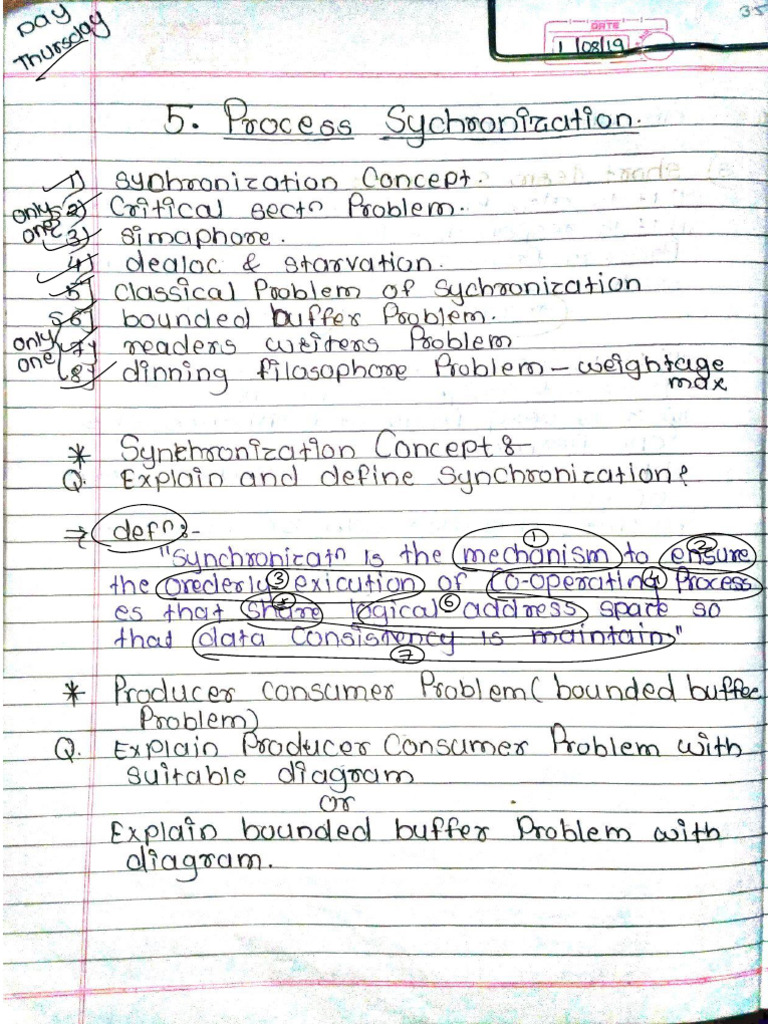 Day
Thursday
35
DATE
1/08/19
5. Process Sychronization.
1) Synchronization Concept.
only one
2) Critical sectn Problem.
3) simaphore.
4) dealoc & starvation.
5) Classical Problem of Sychronization
6) bounded buffer Problem.
only one
7) readers writers Problem
8) dinning filasophore Problem - weightage
max
* Synchronization Concept :-
Q. Explain and define Synchronization?
⇒ defn:-
"Synchronizatn is the mechanism to ensure
the orederly exicution of Co-operating Process
es that share logical address space so
that data Consistency is maintain"
1
2
3
4
5
6
7
* Producer consumer Problem (bounded buffer
Problem)
Q. Explain Producer Consumer Problem with
suitable diagram
or
Explain bounded buffer Problem with
diagram.